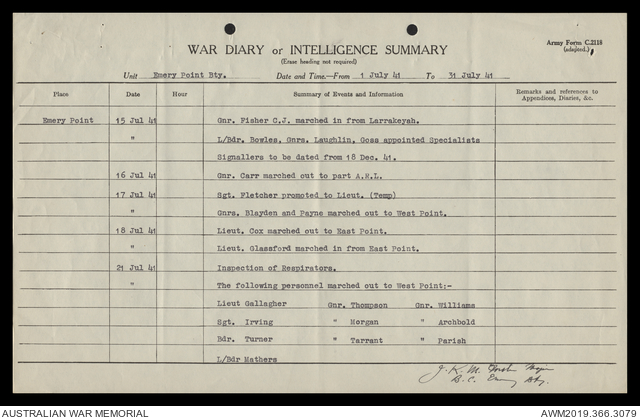 WAR DIARY or INTELLIGENCE SUMMARY
(Erase heading not required)
Army Form C.2118
(adapted.)
Unit Emery Point Bty. Date and Time.—From 1 July 41 To 31 July 41
Place Date Hour Summary of Events and Information Remarks and references to
Appendices, Diaries, &c.
Emery Point 15 Jul 41 Gnr. Fisher C.J. marched in from Larrakeyah.
" L/Bdr. Bowles, Gnrs. Laughlin, Goss appointed Specialists
Signallers to be dated from 18 Dec. 41.
16 Jul 41 Gnr. Carr marched out to part A.R.L.
17 Jul 41 Sgt. Fletcher promoted to Lieut. (Temp)
" Gnrs. Blayden and Payne marched out to West Point.
18 Jul 41 Lieut. Cox marched out to East Point.
" Lieut. Glassford marched in from East Point.
21 Jul 41 Inspection of Respirators.
" The following personnel marched out to West Point:-
Lieut Gallagher Gnr. Thompson Gnr. Williams
Sgt. Irving " Morgan " Archbold
Bdr. Turner " Tarrant " Parish
L/Bdr Mathers
J. K. M. Major
B.C. Emery Bty.
AUSTRALIAN WAR MEMORIAL
AWM2019.366.3079